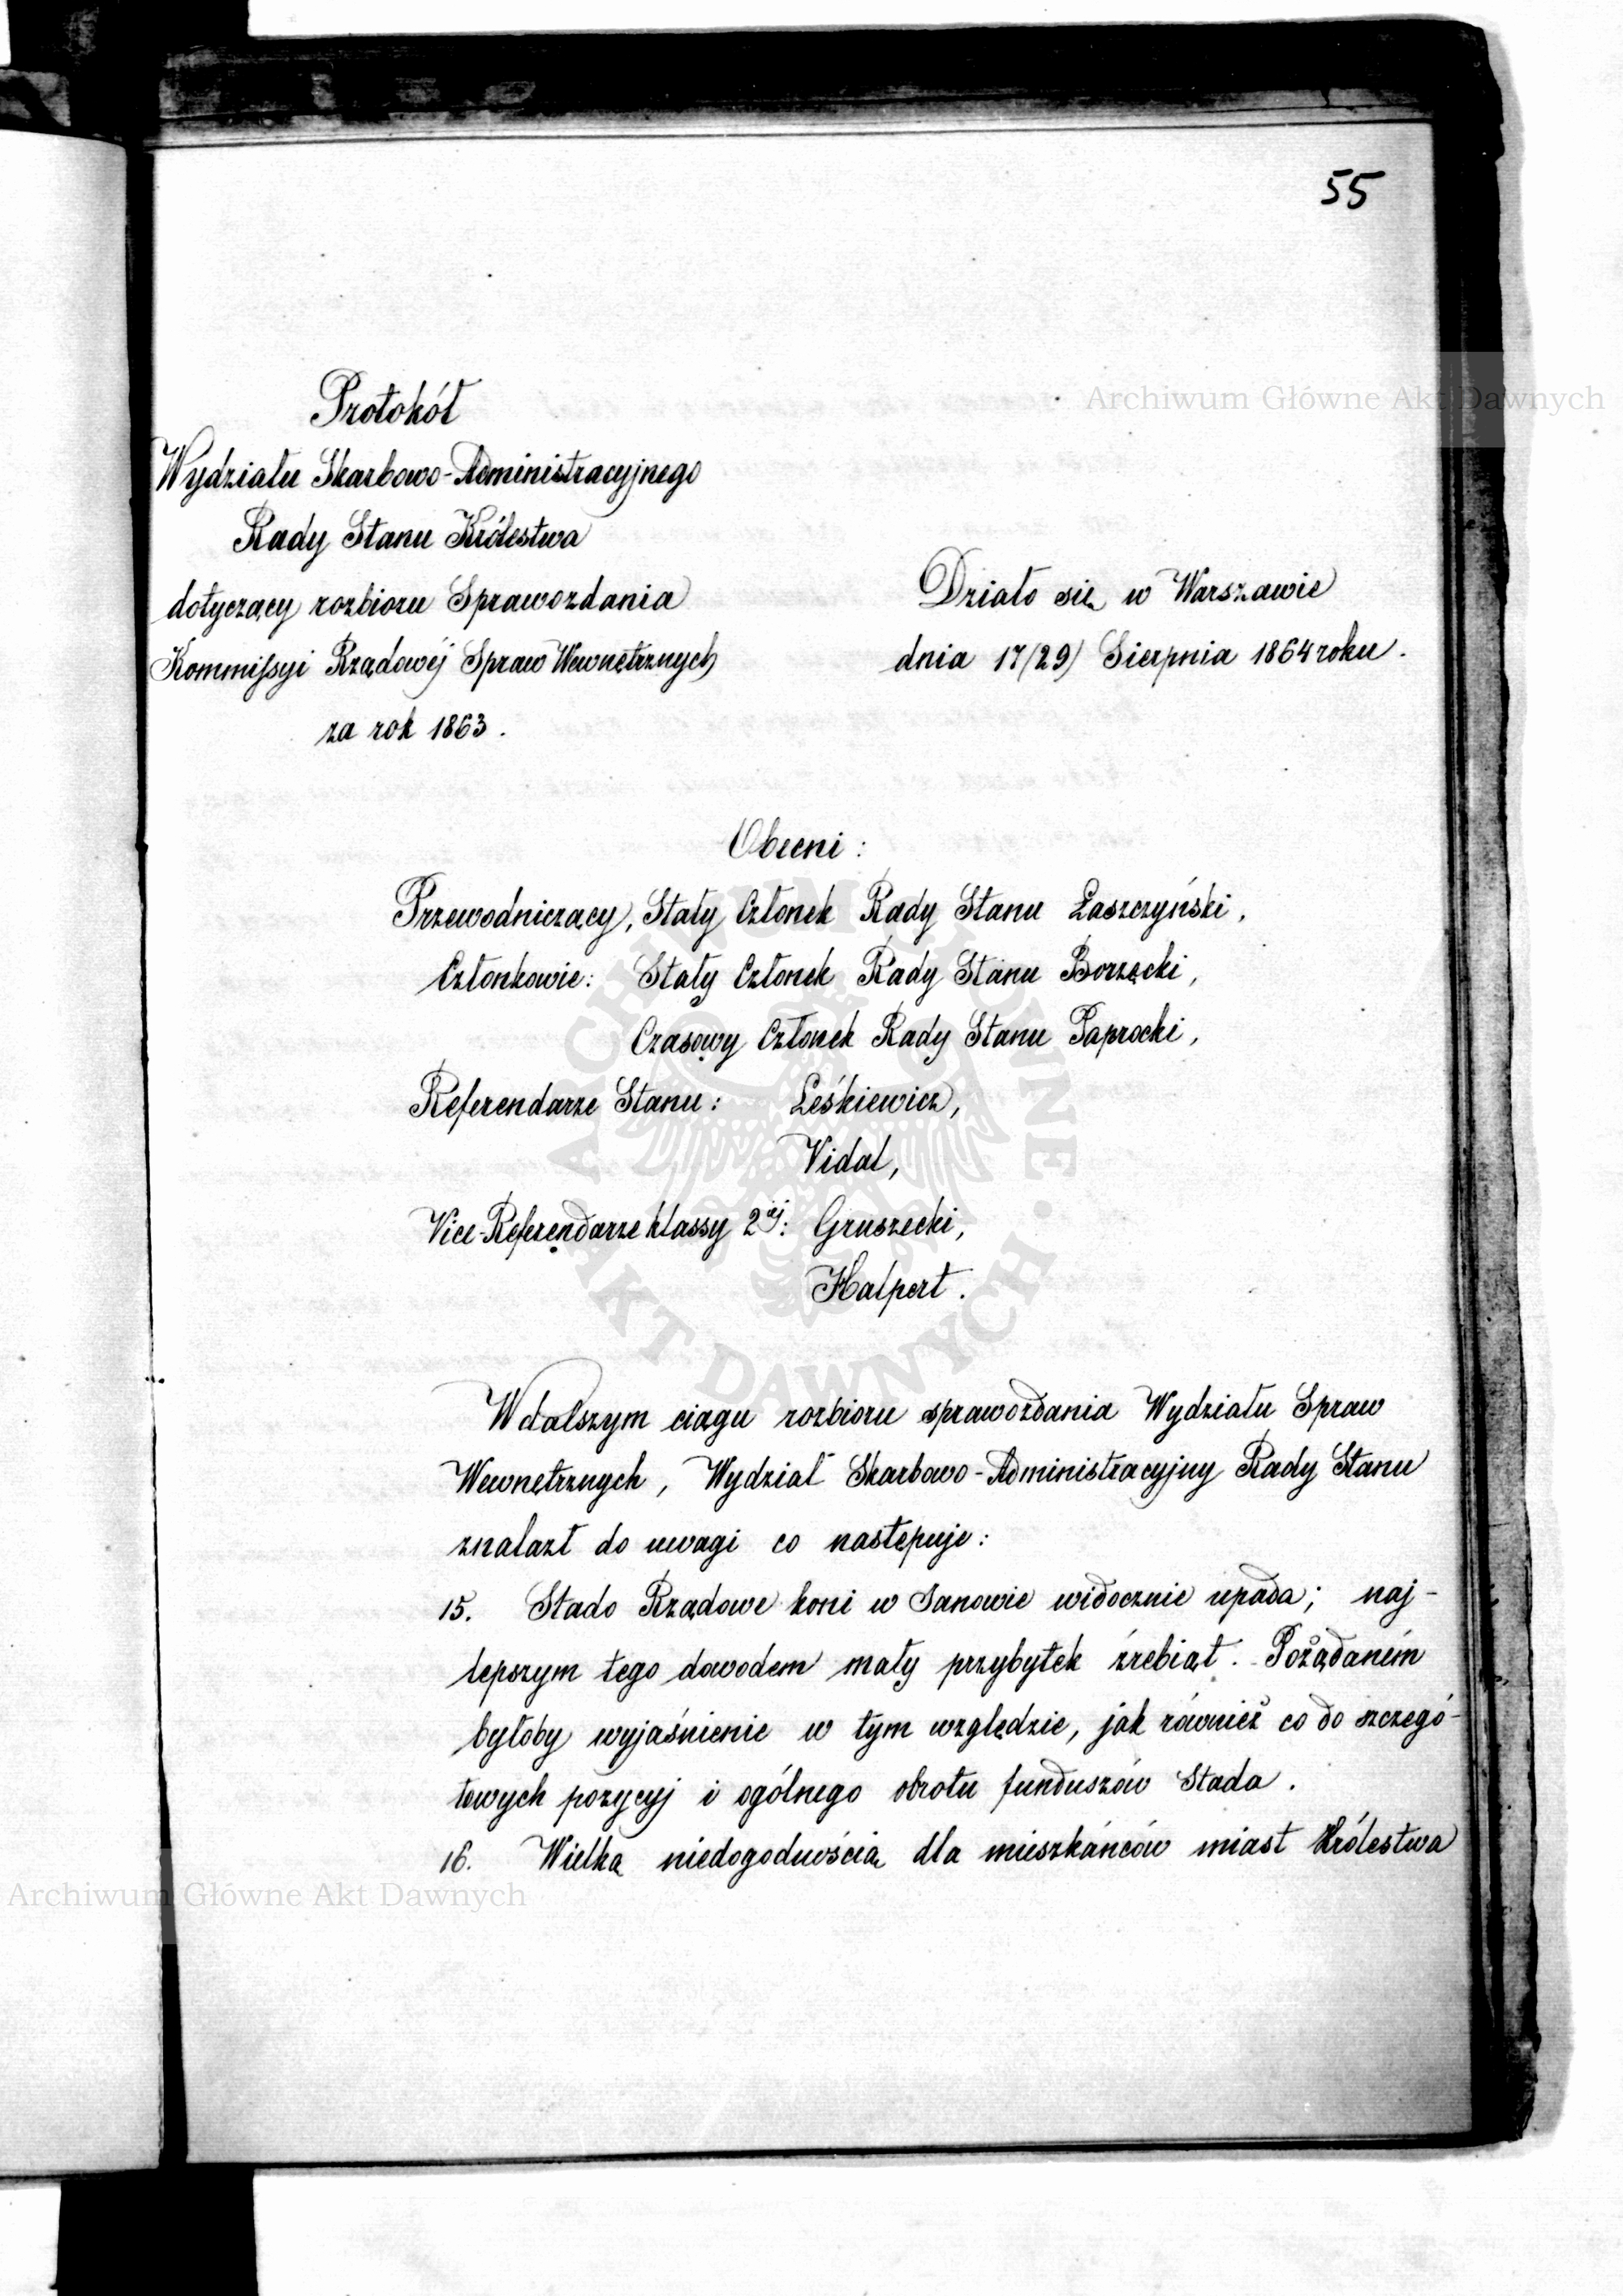 55
Protokół
Wydziału Skarbowo-Administracyjnego
Rady Stanu Królestwa
dotyczący rozbioru Sprawozdania
Kommissyi Rządowéj Spraw Wewnętrznych
za rok 1863.
Działo się w Warszawie
dnia 17/29) Sierpnia 1864 roku.
Obecni:
Przewodniczący, Stały Członek Rady Stanu Łaszczyński,
Członkowie: Stały Członek Rady Stanu Borzęcki,
Czasowy Członek Rady Stanu Paprocki,
Referendarze Stanu: Leśkiewicz,
Vidal,
Vice-Referendarze klassy 2éj: Gruszecki,
Halpert.
W dalszym ciągu rozbioru sprawozdania Wydziału Spraw
Wewnętrznych, Wydział Skarbowo-Administracyjny Rady Stanu
znalazł do uwagi co następuje:
15. Stado Rządowe koni w Janowie widocznie upada; naj-
lepszym tego dowodem mały przybytek źrebiąt. Pożądaném
byłoby wyjaśnienie w tym względzie, jak również co do szczegó-
łowych pozycyj i ogólnego obrotu funduszów Stada.
16. Wielką niedogodnością dla mieszkańców miast Królestwa
Archiwum Główne Akt Dawnych
Archiwum Główne Akt Dawnych
ARCHIWUM GŁÓWNE AKT DAWNYCH